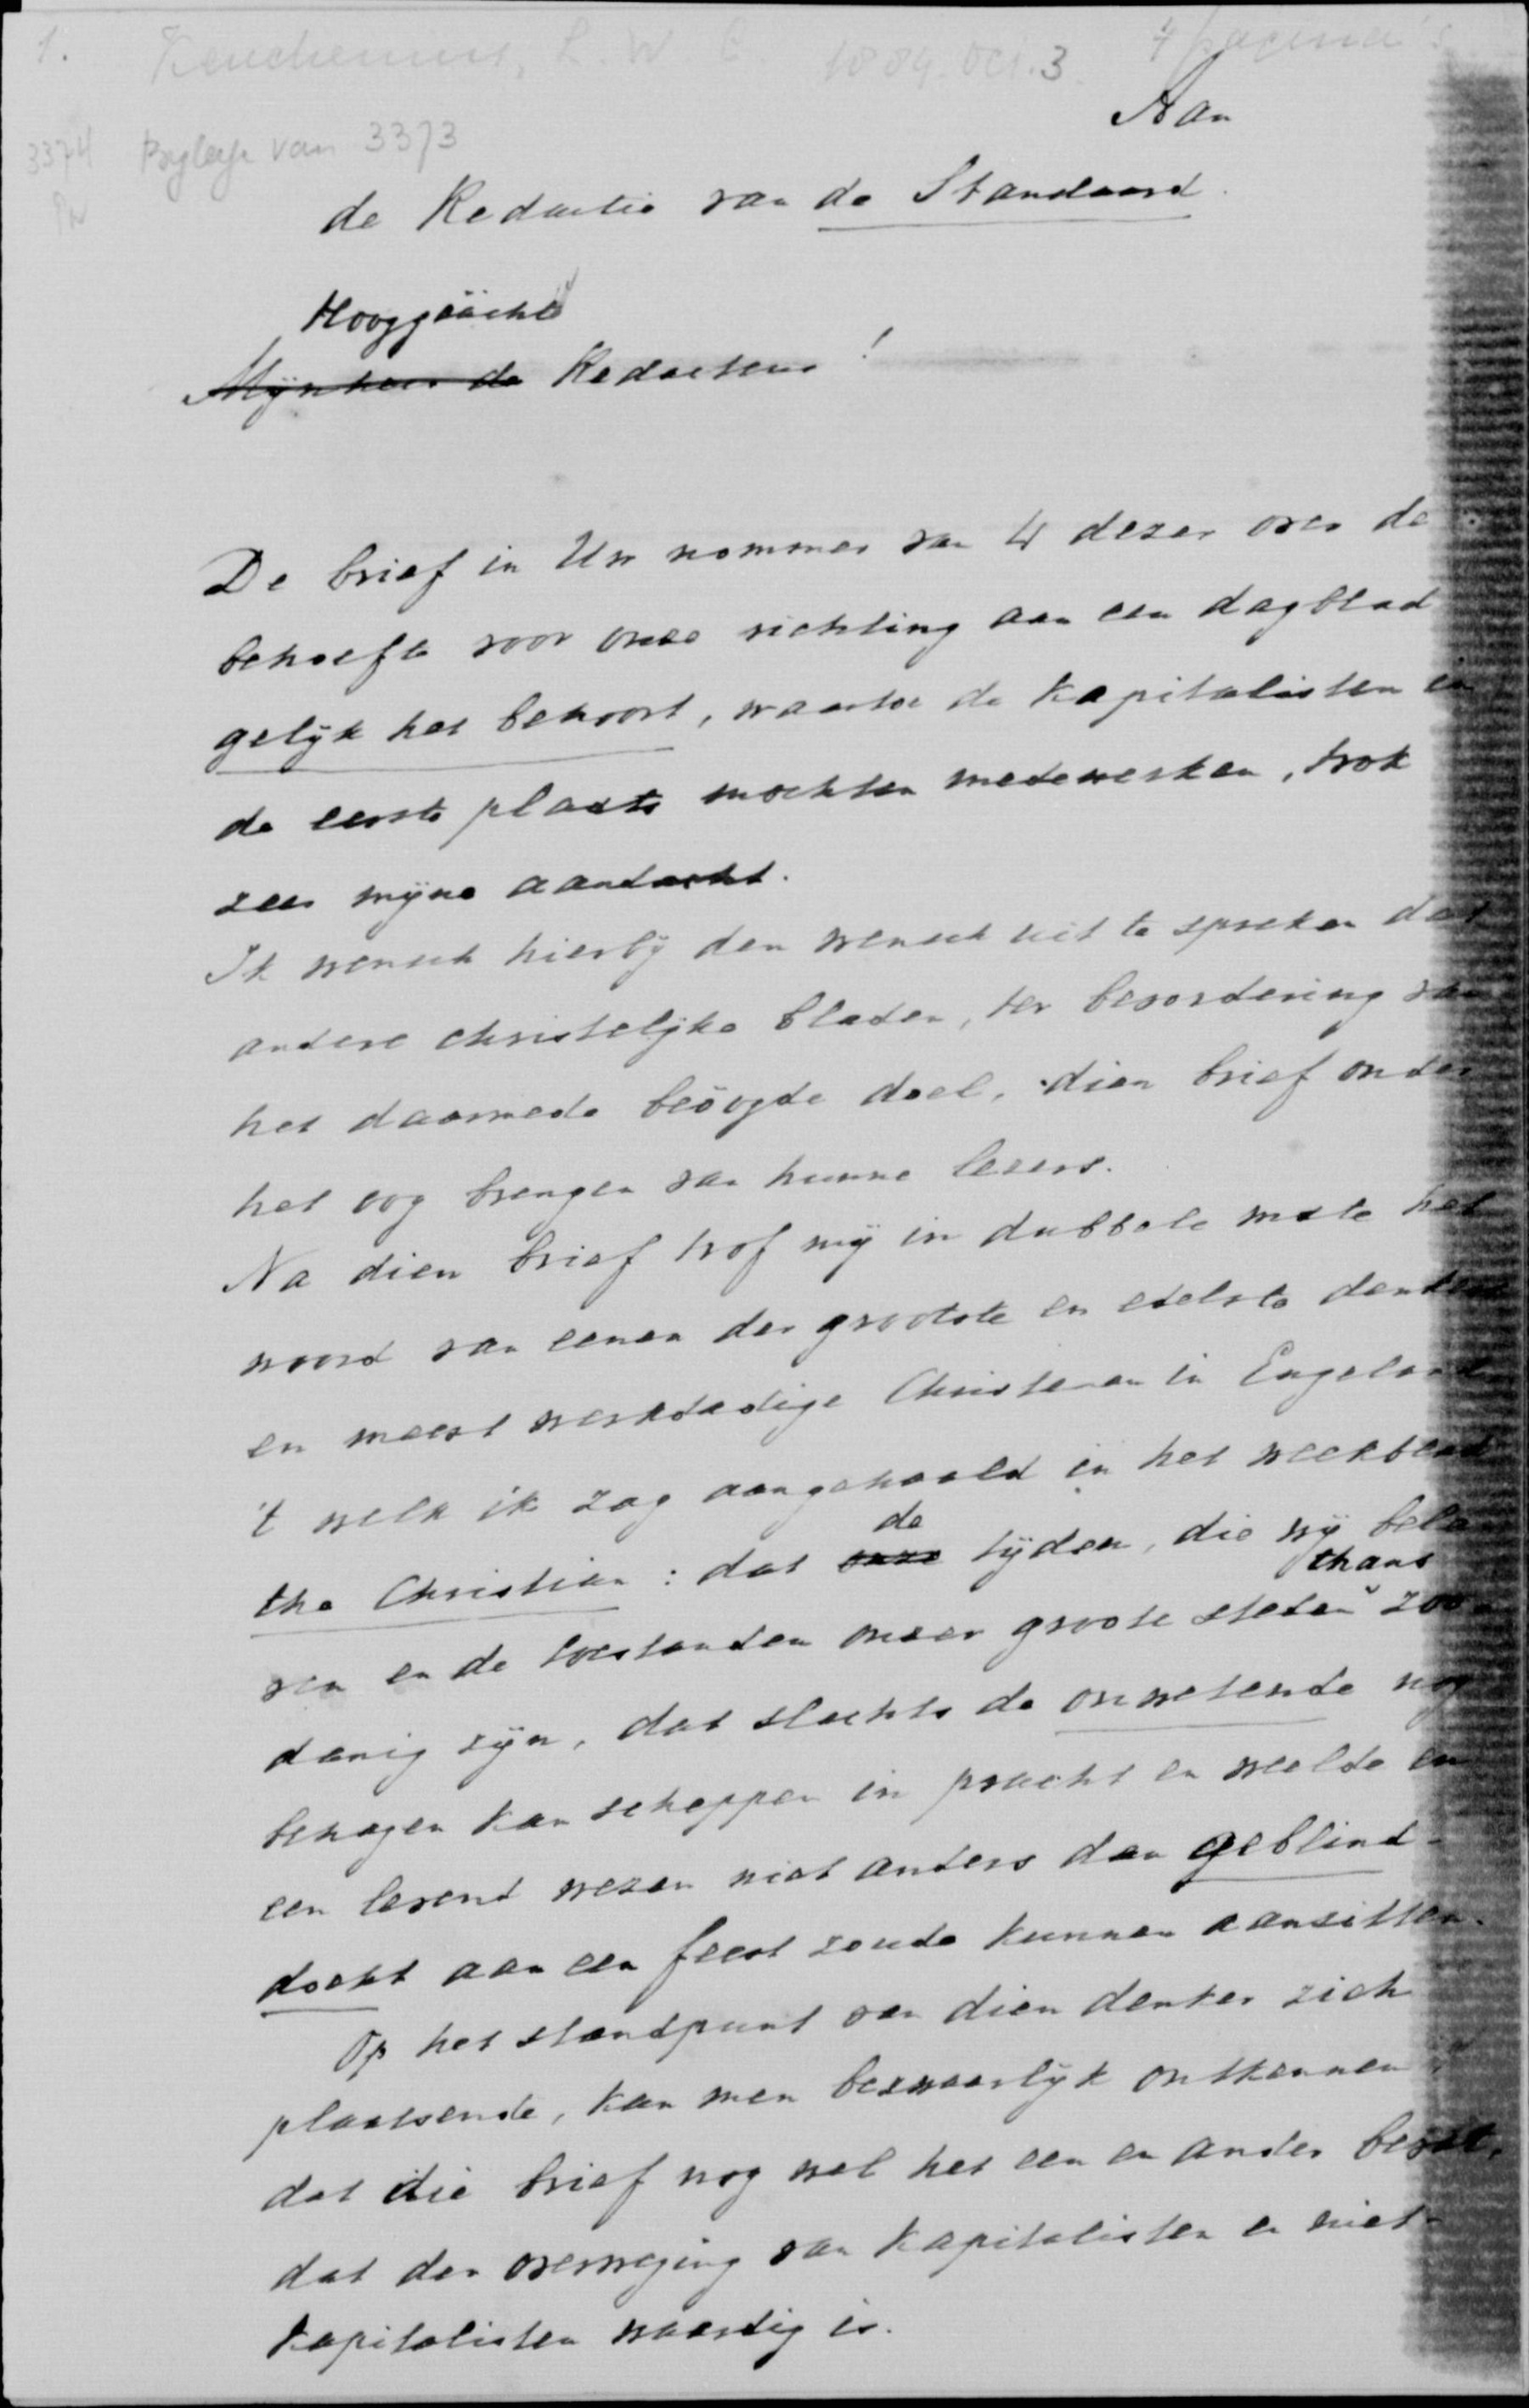 1. Keuchenius, L. W. C. 1884. Oct. 3 4 pagina's
Aan
3374 Bijlage van 3373
PN
de Redactie van de Standaard.
Hooggeächte
Mijnheer de Redacteur!
De brief in Uw nommer van 4 dezer over de
behoefte voor onze richting aan een dagblad
gelijk het behoort, waartoe de kapitalisten in
de eerste plaats mochten medewerken, trok
zeer mijne aandacht.
Ik wensch hierbij den wensch uit te spreken dat
andere christelijke bladen, ter bevordering van
het daarmede beöogde doel, dien brief onder
het oog brengen van hunne lezers.
Na dien brief trof mij in dubbele mate het
woord van eenen der grootste en edelste denkers
en meest werkdadige Christenen in Engeland
't welk ik zag aangehaald in het weekblad
de
the Christian: dat onze tijden, die wij bele
thans
ven en de toestanden onzer groote steden zoo
danig zijn, dat slechts de onwetende nog
behagen kan scheppen in pracht en weelde en
een levend wezen niet anders dan geblind-
doekt aan een feest zoude kunnen aanzitten.
Op het standpunt van dien denker zich
plaatsende, kan men bezwaarlijk ontkennen
dat die brief nog wel het een en ander bevat,
dat der overweging van kapitalisten en niet-
kapitalisten waardig is.